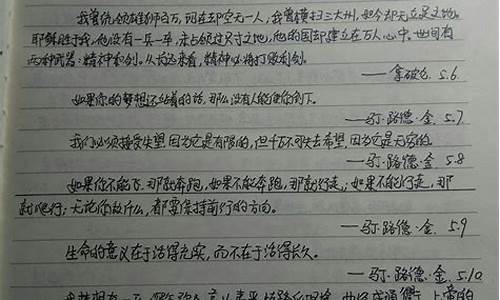 我曾统领雄师百万,现在却空无一人,我曾横扫三大洲,如今却无立足之地。
耶稣胜于我,他没有一兵一卒,未占领过尺寸之地,他的国却建立在万人心中。世间有
两种武器:精神和剑。从长远看,精神必将打败利剑。
——拿破仑 5.6
如果你的梦想还站着的话,那么没有人能使你倒下。
——马丁·路德·金 5.7
我们必须接受失望,因为它是有限的,但千万不可失去希望,因为它是无穷的。
——马丁·路德·金 5.8
如果你不能飞,那就奔跑,如果不能奔跑,那就行走;如果不能行走,那
就爬行;无论你做什么,都要保持前行的方向。
——马丁·路德·金. 5.9
生命的意义在于活得充实,而不在于活得长久。
——马丁·路德·金. 5.10
我梦想有一天